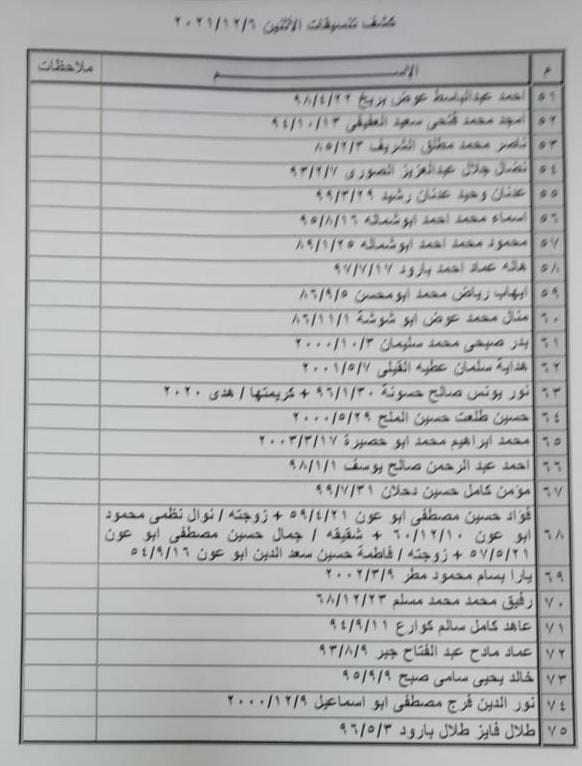 كشف تنسيقات الاثنين ٢٠٢١/١٢/٦
م الاســــــــــــم ملاحظات
٥١ احمد عبدالباسط عوض بريخ ٩٨/٤/٢٢
٥٢ امجد محمد فتحى سعيد العفيفى ٩٤/١٠/١٣
٥٣ ناصر محمد مطلق الشريف ٨٥/٢/٣
٥٤ نضال جلال عبدالعزيز الصورى ٩٣/٢/٧
٥٥ عدنان وحيد عدنان رشيد ٩٩/٣/٢٩
٥٦ اسماء محمد احمد ابوشماله ٩٥/٨/١٦
٥٧ محمود محمد احمد ابوشماله ٨٩/١/٢٥
٥٨ هاله عماد احمد بارود ٩٧/٧/١٧
٥٩ ايهاب رياض محمد ابومحسن ٨٦/٩/٥
٦٠ منال محمد عوض ابو شوشة ٨٦/١١/١
٦١ بدر صبحى محمد سليمان ٢٠٠٠/١٠/٣
٦٢ هداية سلمان عطيه القيلى ٢٠٠١/٥/٧
٦٣ نور يونس صالح حسونة ٩٦/١/٣٠ + كريمتها / هدى ٢٠٢٠
٦٤ حسين طلعت حسين الملح ٢٠٠٠/٥/٢٩
٦٥ محمد ابراهيم محمد ابو حصيرة ٢٠٠٣/٣/١٧
٦٦ احمد عبد الرحمن صالح يوسف ٩٨/١/١
٦٧ مؤمن كامل حسين دحلان ٩٩/٧/٣١
٦٨ فؤاد حسين مصطفى ابو عون ٥٩/٤/٢١ + زوجته / نوال نظمى محمود
ابو عون ٦٠/١٢/١٠ + شقيقه / جمال حسين مصطفى ابو عون
٥٧/٥/٢١ + زوجته / فاطمة حسين سعد الدين ابو عون ٥٤/٩/١٦
٦٩ يارا بسام محمود مطر ٢٠٠٢/٣/٩
٧٠ رفيق محمد محمد مسلم ٦٨/١٢/٢٣
٧١ عاهد كامل سالم كوارع ٩٤/٩/١١
٧٢ عماد مادح عبد الفتاح جبر ٩٣/٨/٩
٧٣ خالد يحيى سامى صبح ٩٥/٩/٩
٧٤ نور الدين فرج مصطفى ابو اسماعيل ٢٠٠٠/١٢/٩
٧٥ طلال فايز طلال بارود ٩٦/٥/٣